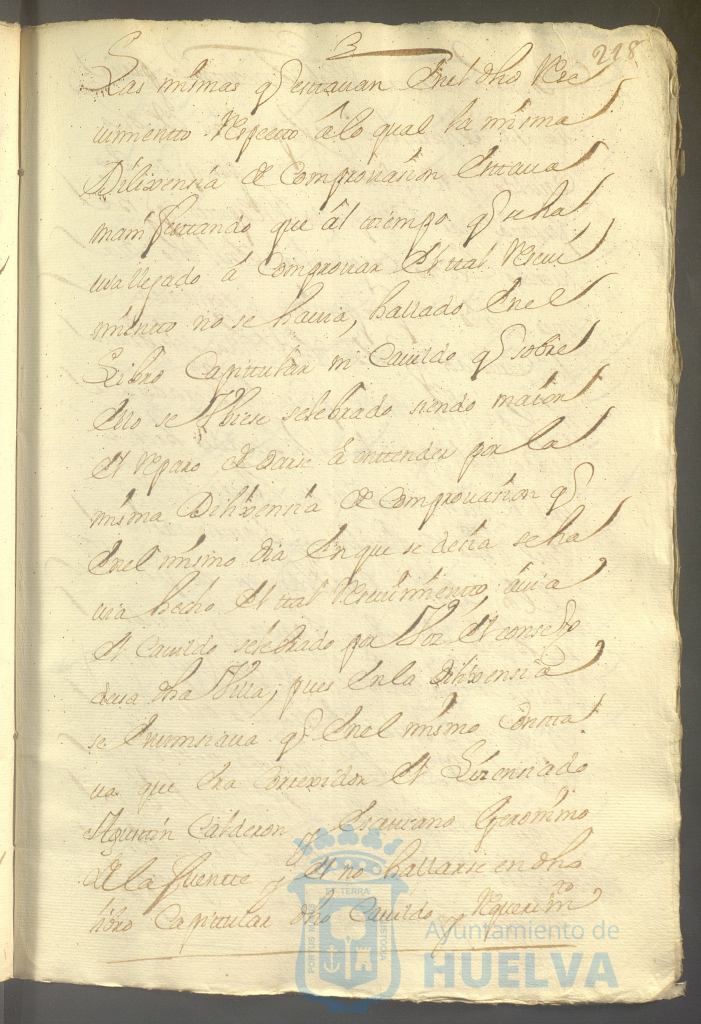 3
218
Las mismas q estauan Enel dho Rece
uimientto Respecto â lo qual la misma
Dilixensia de Comprouasion Esttaua
manifesttando que âl tiempo q se ha
uia llegado â Comprouar El tal Reciui
miento no se hauia, hallado Enel
Libro Capittular ni Cauildo q sobre
ello se Vbiese selebrado siendo maior
El Reparo de darse â enttender por la
misma Dilixensia de Comprouasion q
Enel mismo dia En que se desia se ha
uia hecho El tal Resiuimientto, auia
El Cauildo selebrado por El Consejo
desta dha Villa; pues En la Dilixensia
se Enunsiaua q Enel mismo Constta
ua que Era Correxidor El Lisensiado
Agusttin Calderon y Escriuano Geronimo
de la fuentte y El no hallarse en dho
libro Capittular dho Cauildo y Requerimto
PORTUS MARIS
ET TERRA
CUSTODIA
Ayuntamiento de
HUELVA